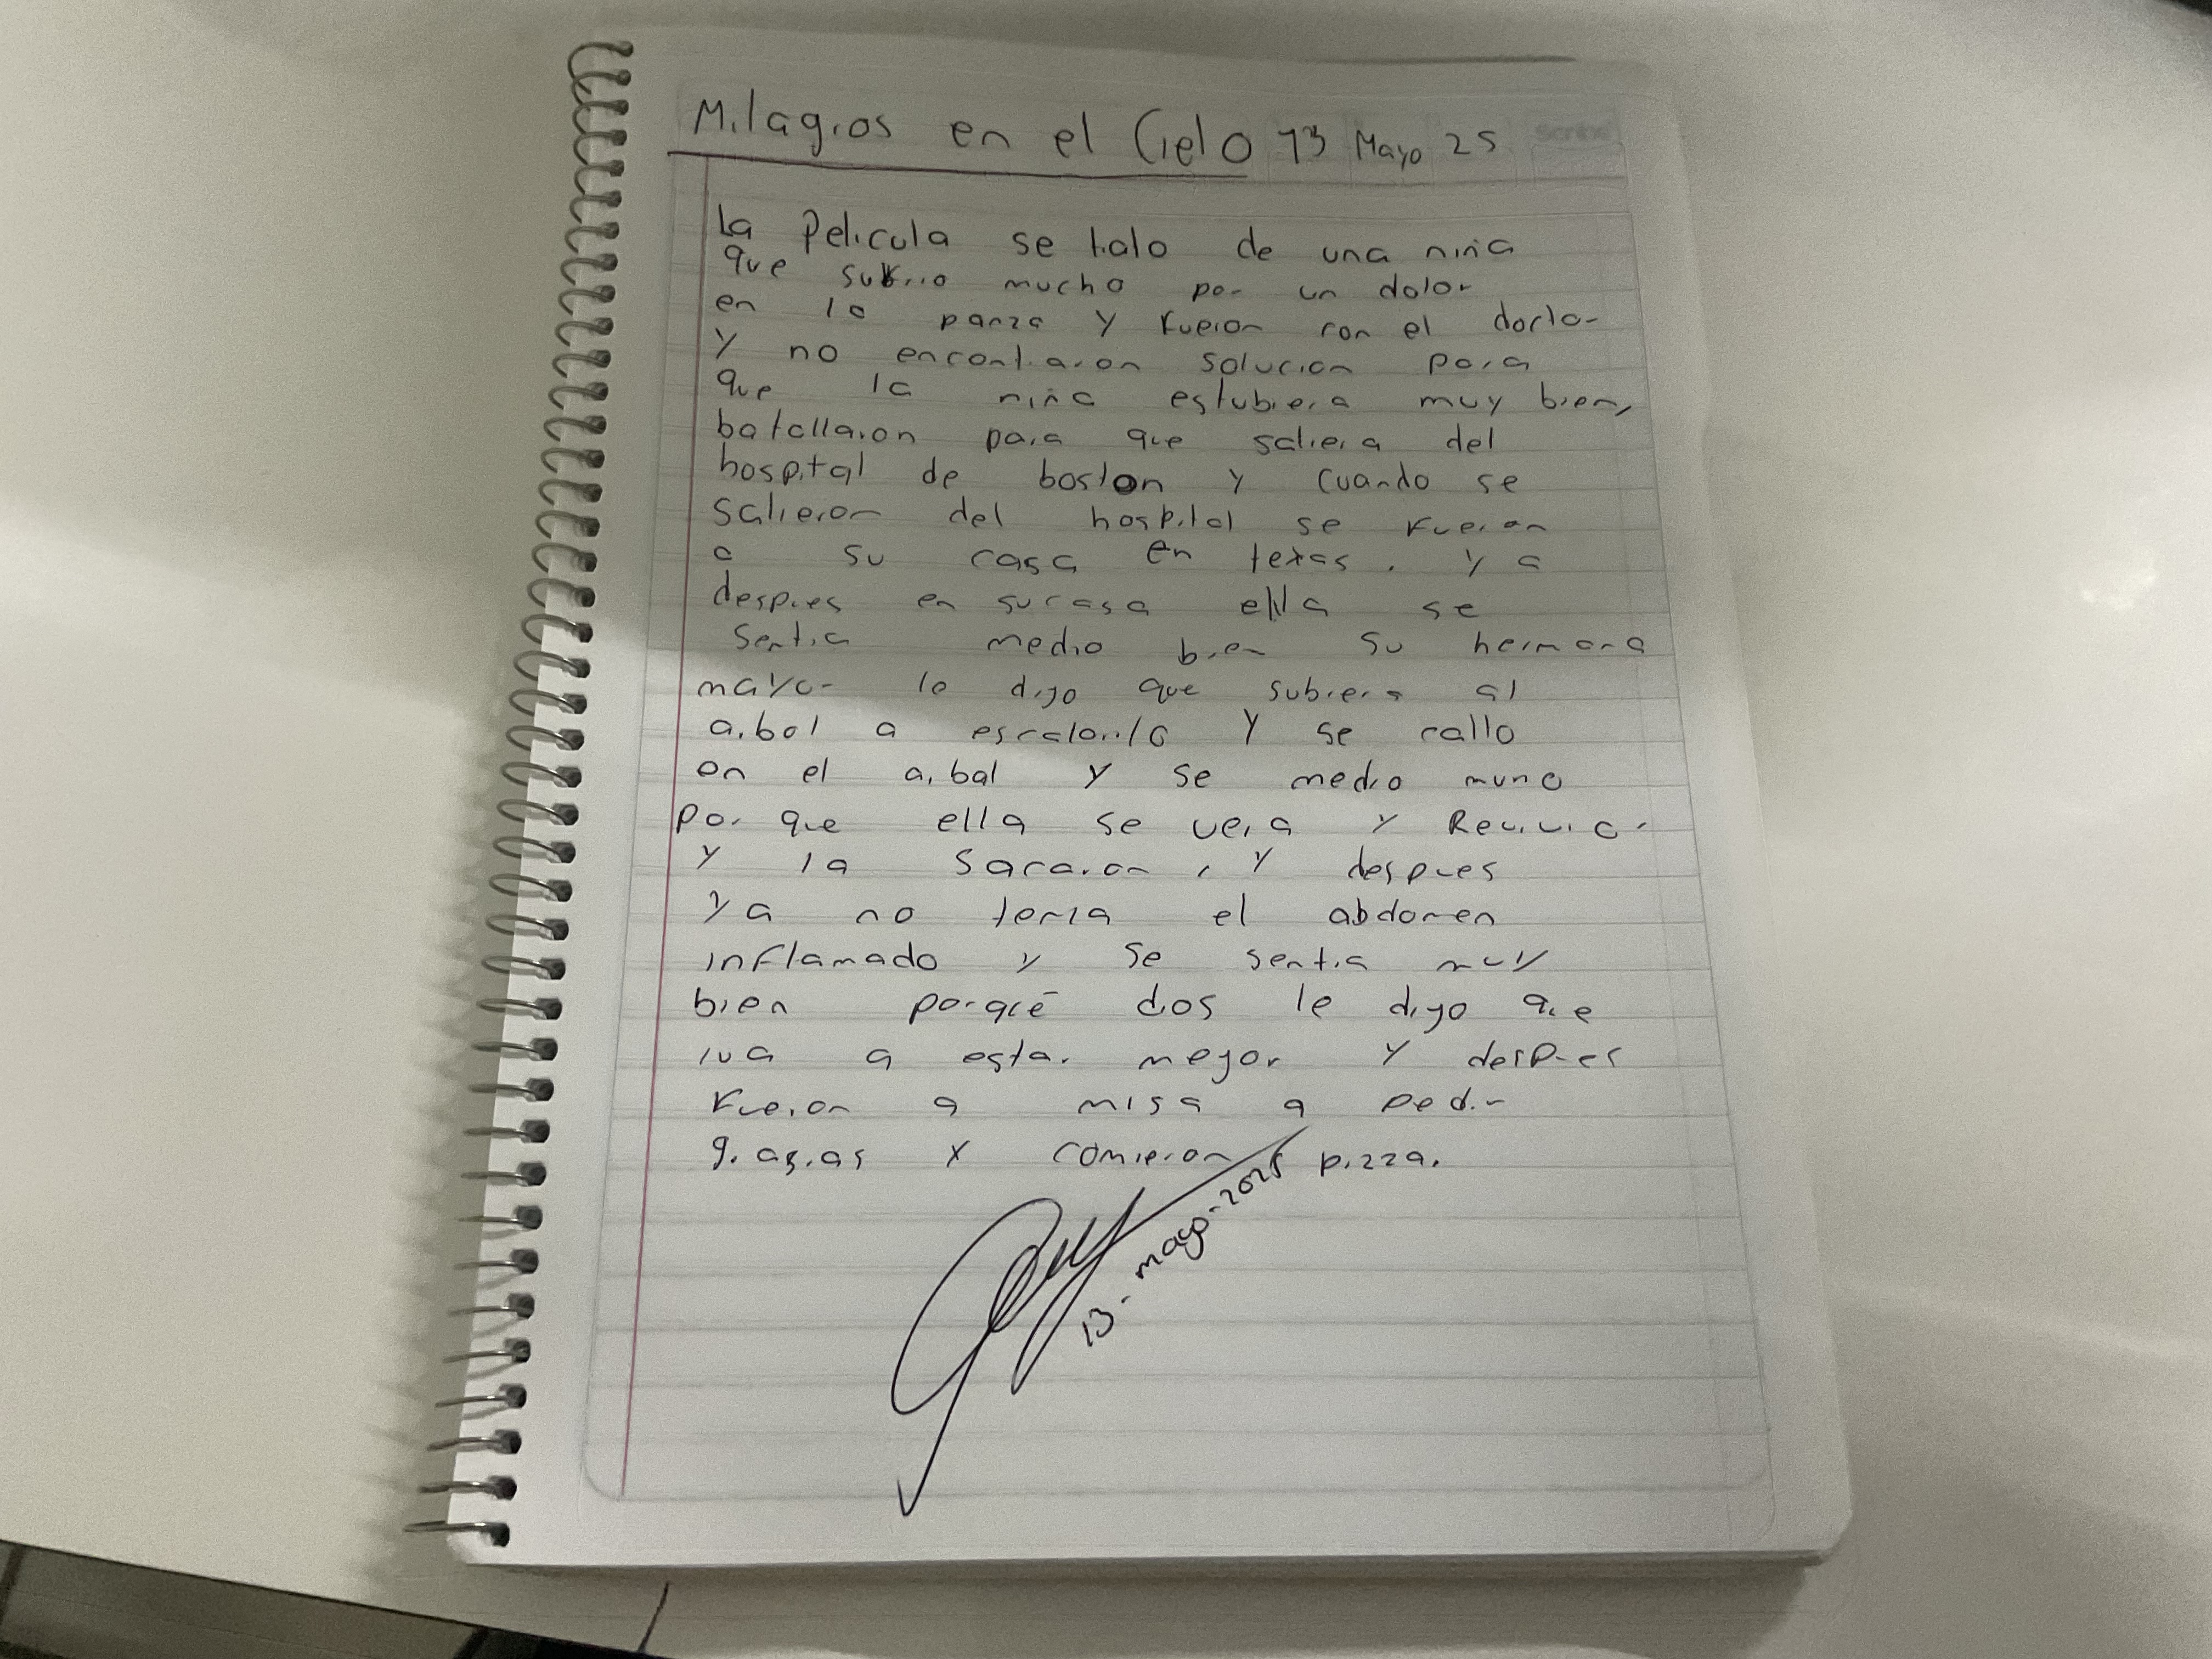 Milagros en el Cielo 13 Mayo 25
La Pelicula se trato de una niña
que sufrio mucho por un dolor
en la panza y fueron con el doctor
y no encontraron solucion para
que la niña estubiera muy bien,
batallaron para que saliera del
hospital de boston y cuando se
salieron del hospital se fueron
a su casa en texas. Ya
despues en su casa ella se
sentia medio bien su hermana
mayor le dijo que subiera al
arbol a escalarlo y se callo
en el arbal y se medio murio
por que ella se veia y Revivio.
y la sacaron, y despues
ya no tenia el abdomen
inflamado y se sentia muy
bien porque dios le dijo que
iva a estar mejor y despues
fueron a misa a pedir
grasias y comieron pizza.
13-mayo-2025